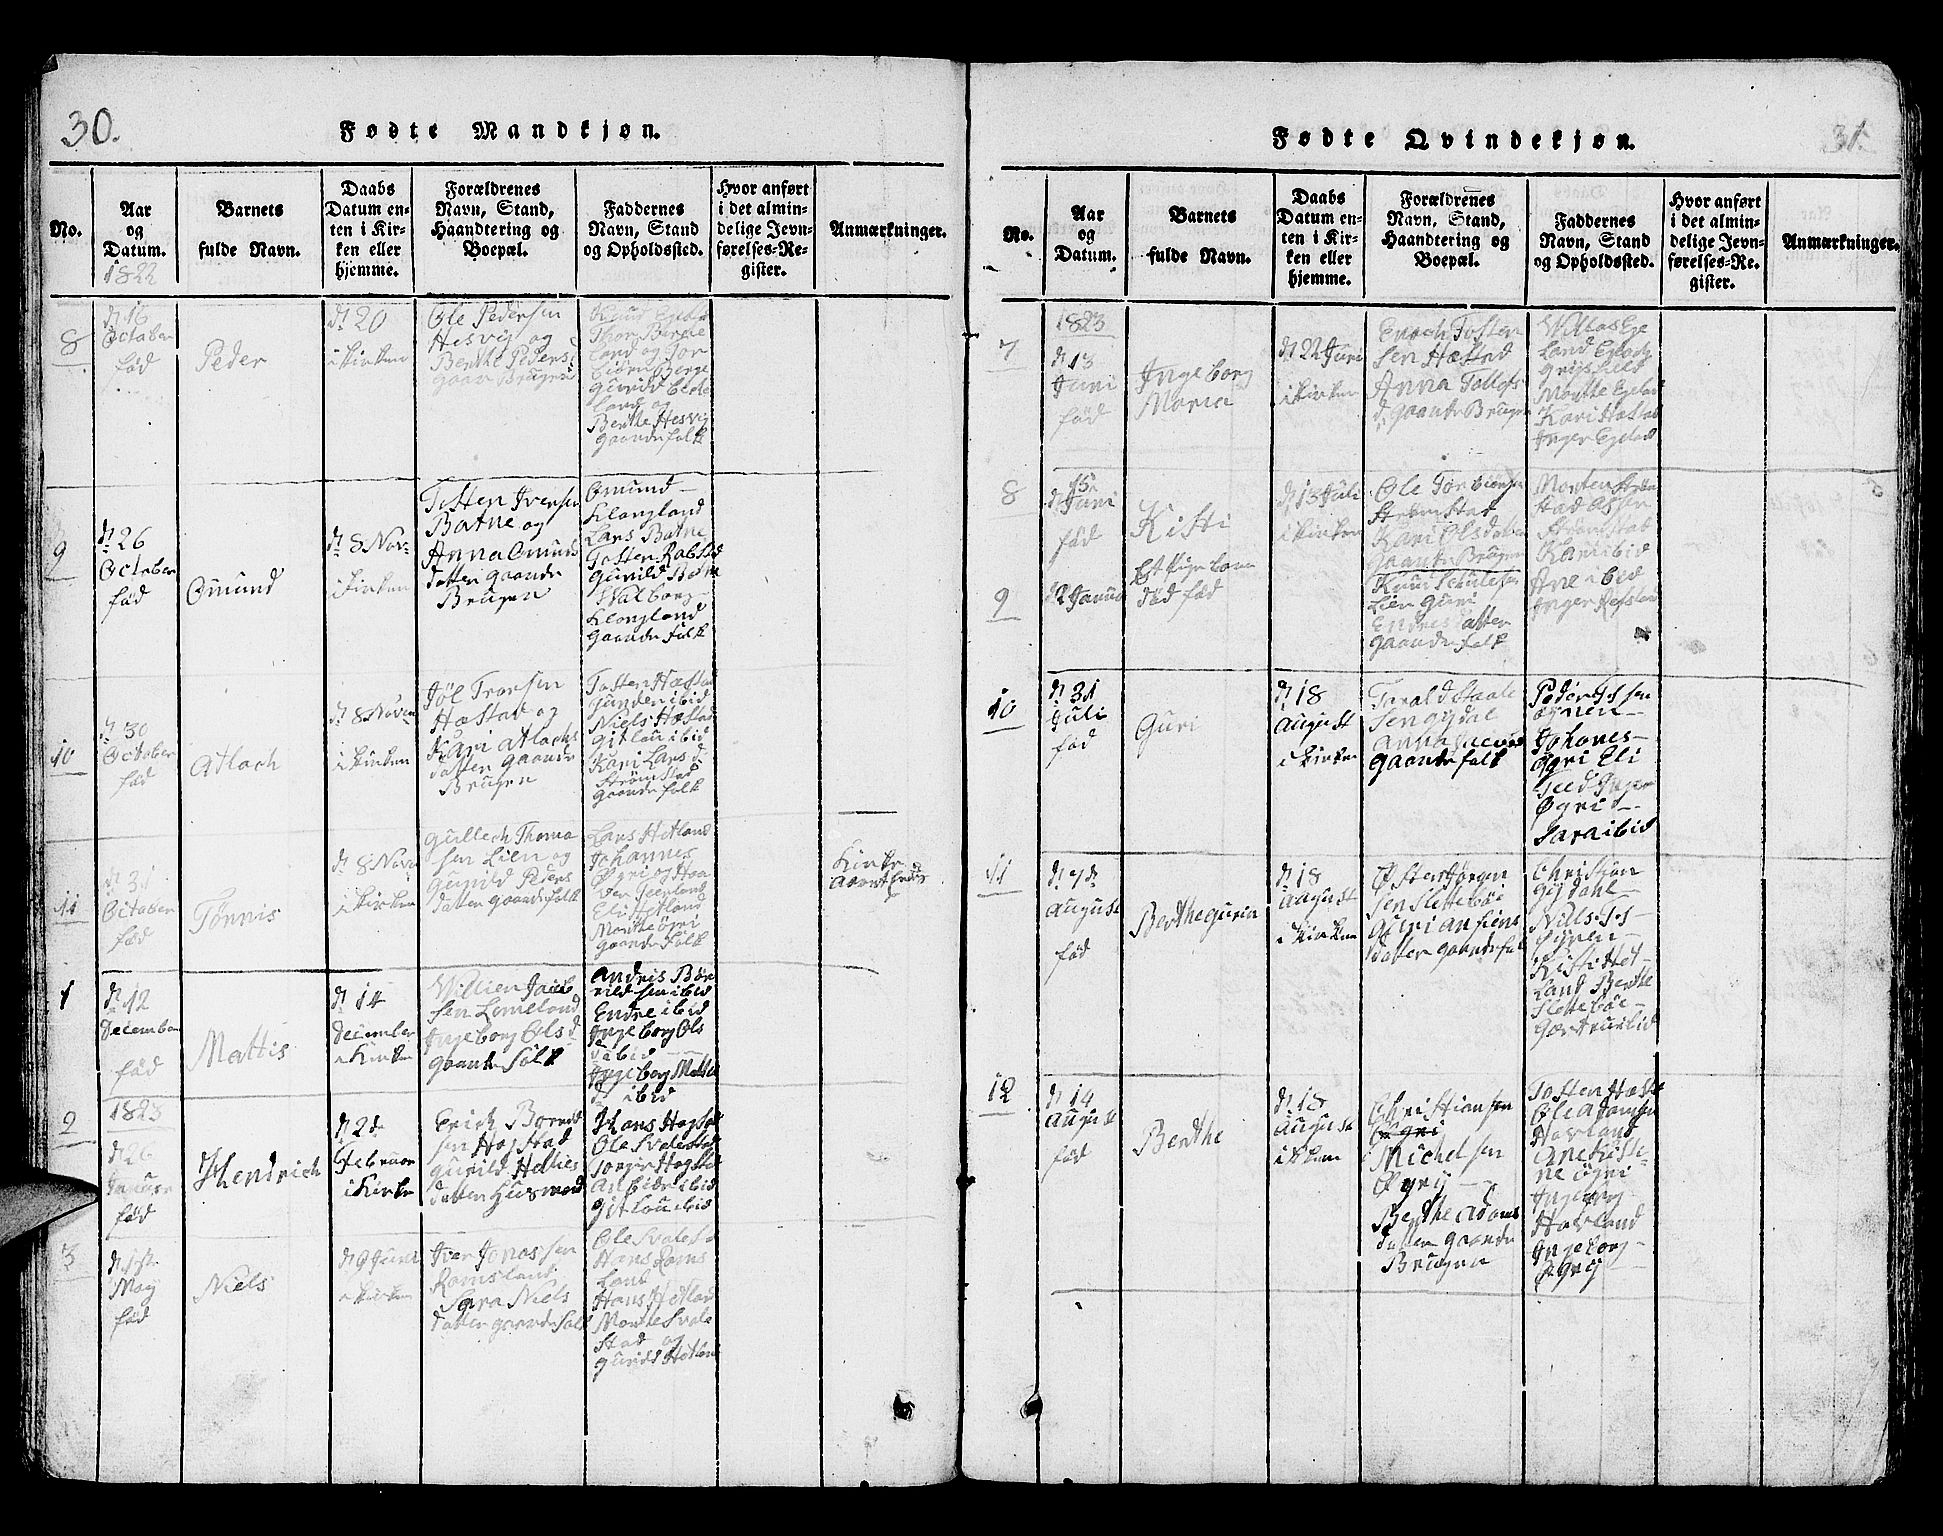 30.
Fødte Mandkjøn.
No.
Aar
og
Datum.
1822
Barnets
fulde Navn.
Daabs
Datum en-
ten i Kir-
ken eller
hjemme.
Forældrenes
Navn, Stand,
Haandtering og
Boepæl.
Faddernes
Navn, Stand
og Opholdssted.
Hvor anført
i det almin-
delige Jevn-
førelses-Re-
gister.
Anmærkninger.
8
d. 16
October
fød
Peder
d. 20
i Kirken
Ole Pedersen
Hesvig og
Berthe Peders
Gaard Brugere
Thor Berge
land og Tor
Berge
Gunild Eide
land og
Berthe Hesvig
Gaardefolk
9
d. 26
October
fød
Omund
d. 8 Nov.
i Kirken
Tosten Iversen
Batne og
Anna Omunds
datter Gaarde
Brugere
Omund
Klongland
Lars Batne
Tosten Rabstad
Gunild Batne
Svalborg
Klongland
Gaardefolk
10
d. 30
October
fød
Atlach
d. 8 Novem
i Kirken
Jøl Tronsen
Hæstad og
Kari Atlachs
datter Gaarde
Brugere
Tosten Hæstad
Gunden ibid
Niels Hæstad
Gitlou ibid
Kari Lars d
Strømstad
Gaardefolk
11
d. 31
October
fød
Tønnis
d. 8 Nov
i Kirken
Gullech Thoma
sen Lien og
Gunild Peders
datter Gaardefolk
Lars Hetland
Johannes
Øgri og Haa
Eli Hetland
Marthe Øgri
Gaardefolk
Kirke
1
d. 12
December
fød
Mattis
d. 14
December
i Kirken
Villien Jacob
sen Lomeland
Ingeborg Ols d
Gaardefolk
Andris Bør
rildsen ibid
Endre ibid
Ingeborg Ols
d ibid
Ingeborg Mattis
d ibid
2
1823
d. 26
Januar
fød
Hendrich
d. 2d
Februar
i Kirke
Erich Berendt
sen Hogstad
Gunild Hellies
datter Huusmænd
Hans Hogstad
Ole Svalestad
Tonje Hogstad
ibid
Gitlou ibid
3
d. 1st
May
fød
Niels
d. 9 Juni
i Kirken
Iver Jonassen
Romsland
Sara Niels
datter Gaardefolk
Ole Svalestad
Hans Roms
land
Hans Hetland
Marthe Svale
stad og
Gunild Hetland
31.
Fødte Qvindekjøn.
No.
Aar
og
Datum.
Barnets
fulde Navn.
Daabs
Datum en-
ten i Kir-
ken eller
hjemme.
Forældrenes
Navn, Stand,
Haandtering og
Boepæl.
Faddernes
Navn, Stand
og Opholdssted.
Hvor anført
i det almin-
delige Jevn-
førelses-Re-
gister.
Anmærkninger.
7
1823
d. 13
Juni
fød
Ingeborg
Maria
d. 22 Juni
i Kirken
Enoch Tosten
sen Hæstad
Anna Tollefs
d. Gaarde Bruger
Villas Ege
land
Marthe Egeland
Kari Hæstad
Inger Egeland
8
15
d. Juni
fød
Kisti
d. 13 Juli
i Kirken
Ole Torbiønsen
Strømstad
Kari Olsdatter
Gaarde Bruger
Morten Strøm
stad Asser
Strømstad
Kari ibid
Ane ibid
Inger Refsland
9
d. 2 Januar
Et Pigebarn
død fød
Knud Schulesen
Lien Guri
Endres datter
Gaardefolk
10
d. 31
Juli
fød
Guri
d. 18
August
i Kirken
Tarald Saale
sen Gydal
Anna
Gaardefolk
Peder T. sen
Øynen
Johanes
Øgri Eli
Inger
Øgri
Sara ibid
11
d. 7de
August
fød
Berthe Gurina
d. 18
August
i Kirken
Østen Gøran
sen Slettebøe
Guri Ansiens
datter Gaardefol
Christjan
Gydahl
Nills T. s
Øynen
Kisti Het
land Berthe
Slettebøe
Gertru ibid
12
d. 14
August
fød
Berthe
d. 18
August
i Kirken
Christiansen
Øgri
Michelsen
Øgrij
Berthe Adams
datter Gaarde
Brugere
Tosten Hæstad
Ole Adamsen
Hovland
Ane Kisti
ne Øgri
Ingeborg
Hovland
Ingeborg
Øgrij